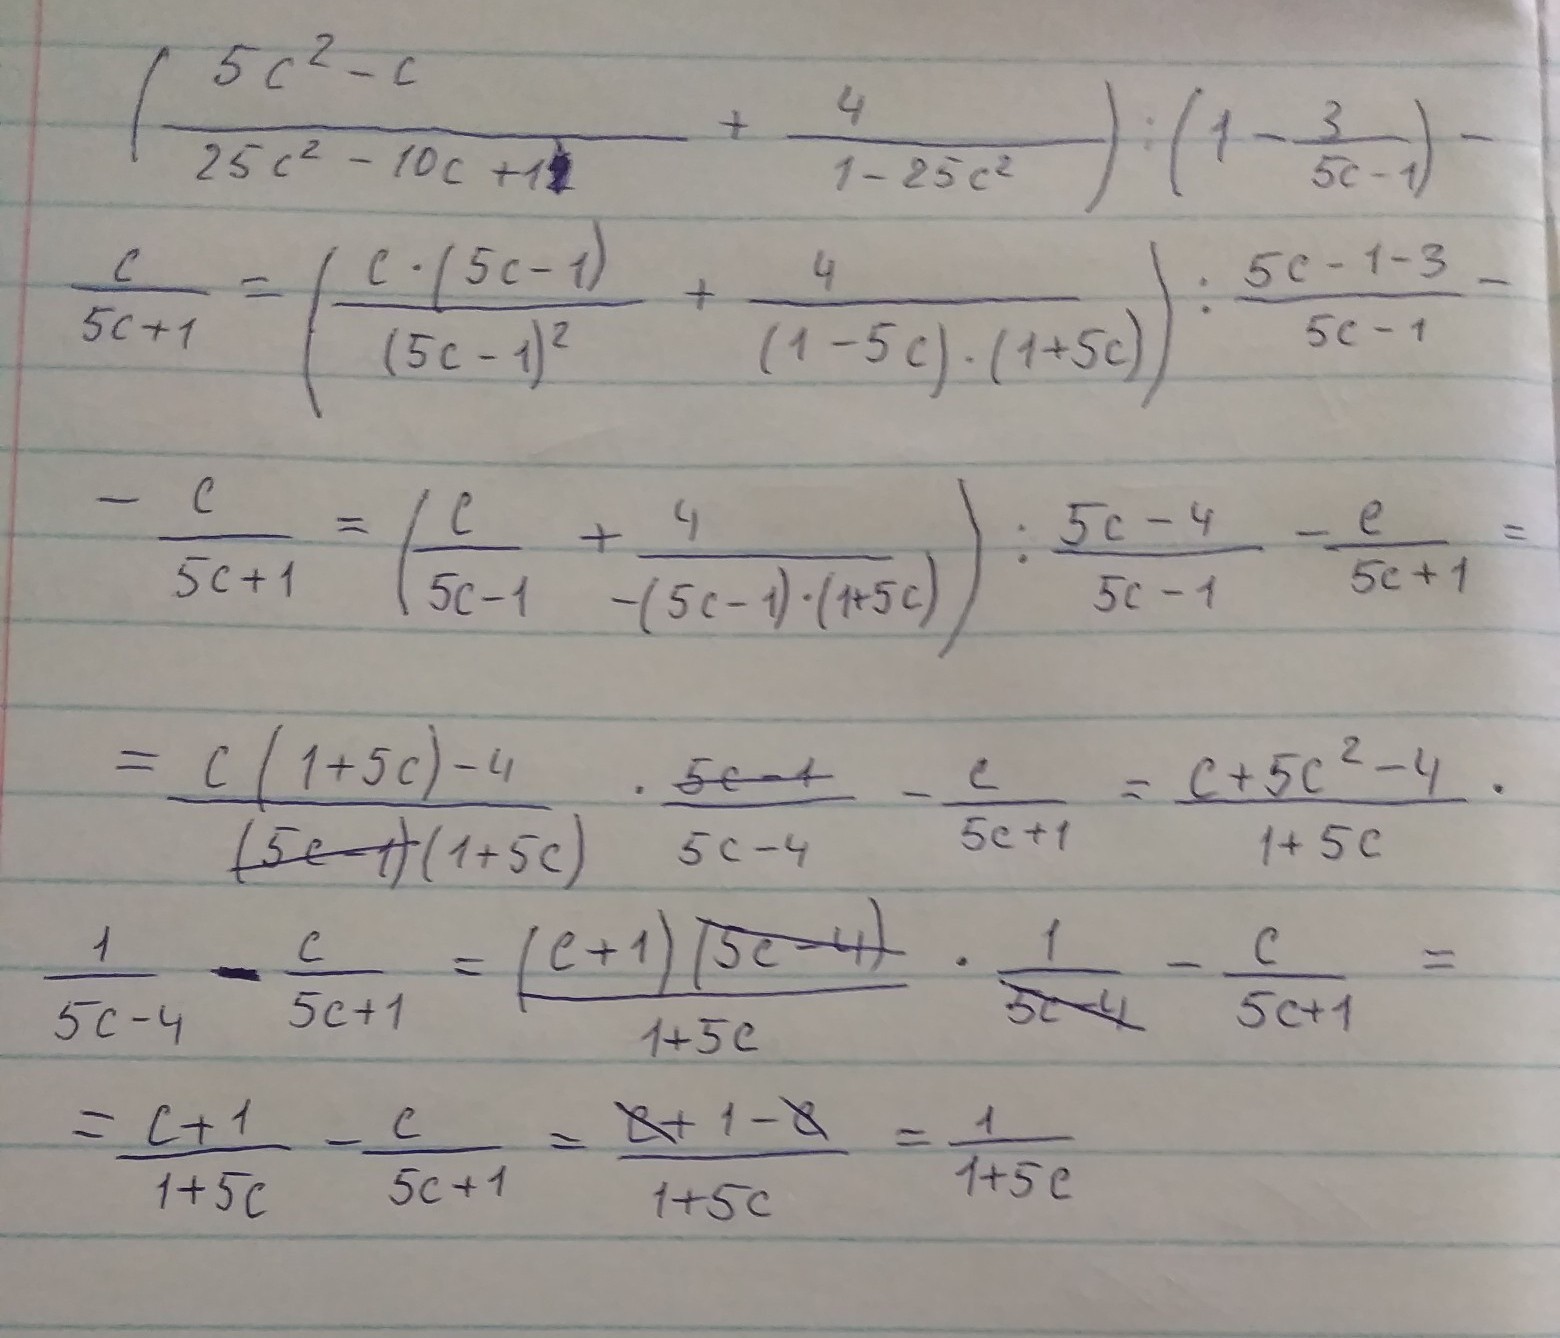 (5c² - c / 25c² - 10c + 1 + 4 / 1 - 25c²) : (1 - 3 / 5c - 1) -
c / 5c + 1 = (c · (5c - 1) / (5c - 1)² + 4 / (1 - 5c) · (1 + 5c)) : 5c - 1 - 3 / 5c - 1 -
- c / 5c + 1 = (c / 5c - 1 + 4 / -(5c - 1) · (1 + 5c)) : 5c - 4 / 5c - 1 - c / 5c + 1 =
= c(1 + 5c) - 4 / (5c - 1)(1 + 5c) · 5c - 1 / 5c - 4 - c / 5c + 1 = c + 5c² - 4 / 1 + 5c ·
1 / 5c - 4 - c / 5c + 1 = (c + 1)(5c - 4) / 1 + 5c · 1 / 5c - 4 - c / 5c + 1 =
= c + 1 / 1 + 5c - c / 5c + 1 = c + 1 - c / 1 + 5c = 1 / 1 + 5c